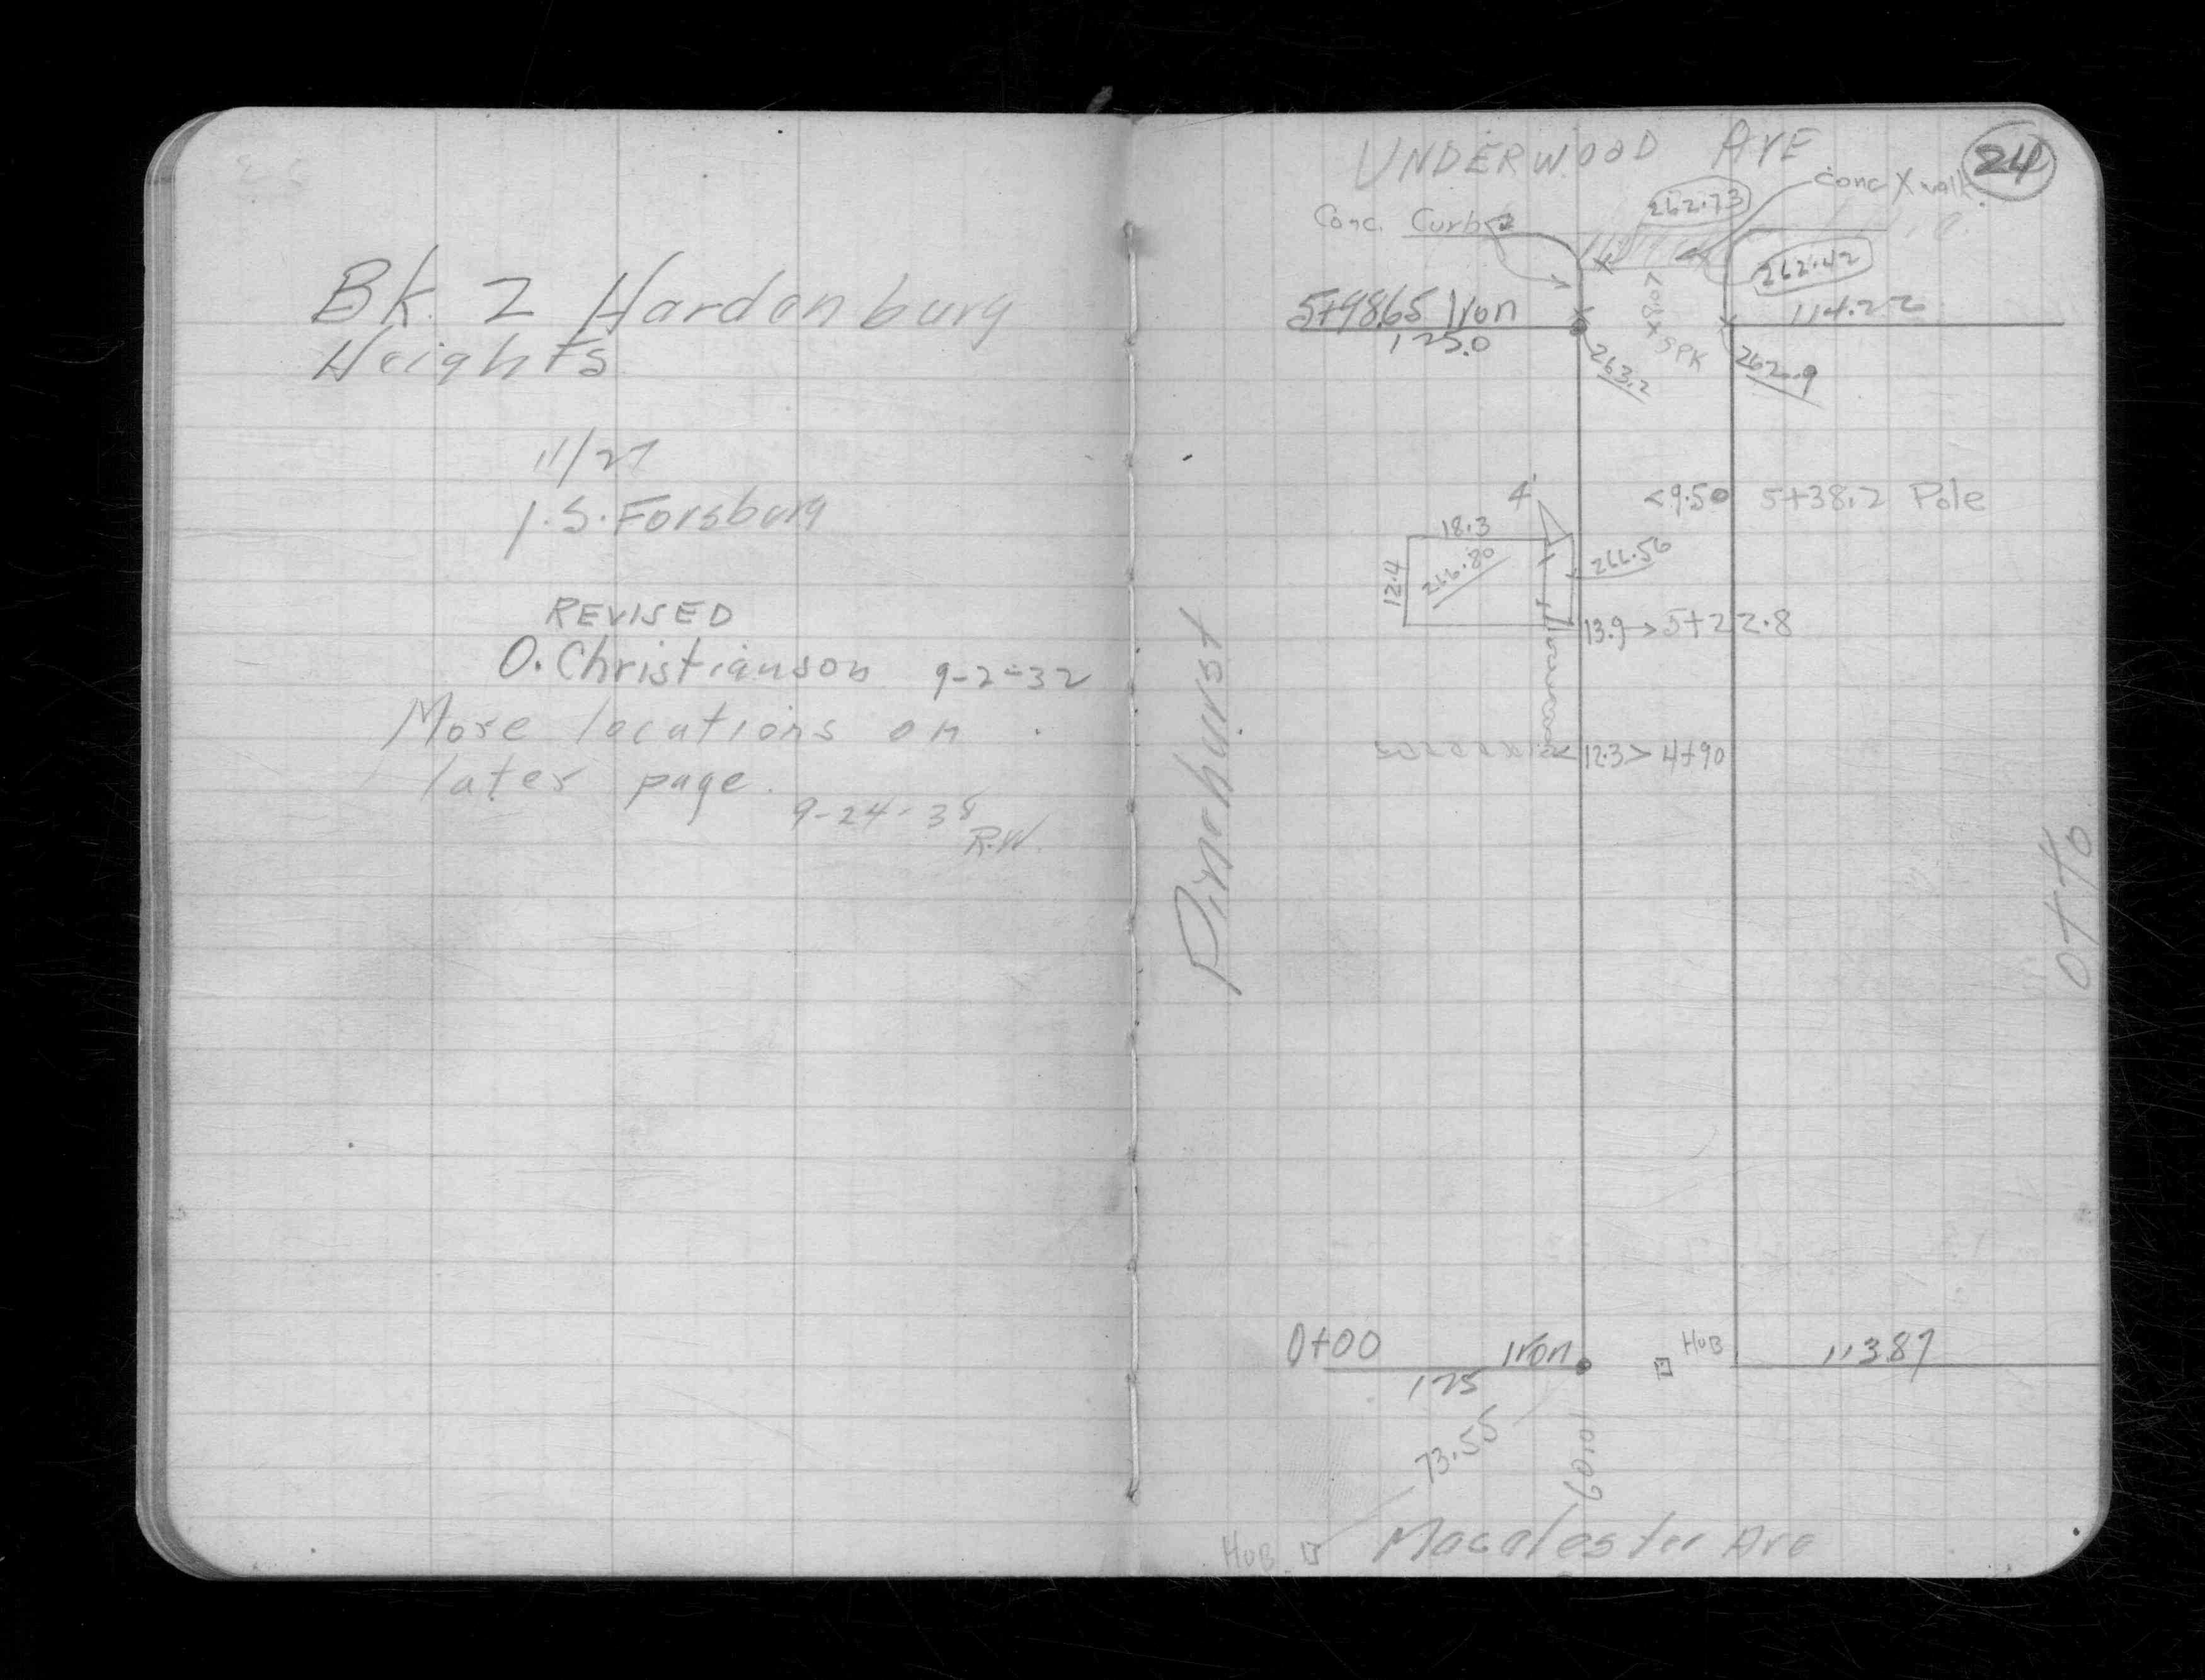 Bk. 2 Hardenburg
Heights
11/27
J.S. Forsburg
REVISED
O. Christianson 9-2-32
More locations on
later page.
9-24-38
R.W.
24
UNDERWOOD AVE
conc X walk
262.73
Conc. Curb
262.42
5+98.65 Iron
114.22
125.0
263.2
SPK
262.9
4'
<9.50 5+38.2 Pole
18.3
12.4
266.80
266.56
13.9 > 5+22.8
Pinehurst
12.3 > 4+90
Otto
0+00 Iron
HUB
113.87
125
73.55
60.01
HUB
Macalester Ave